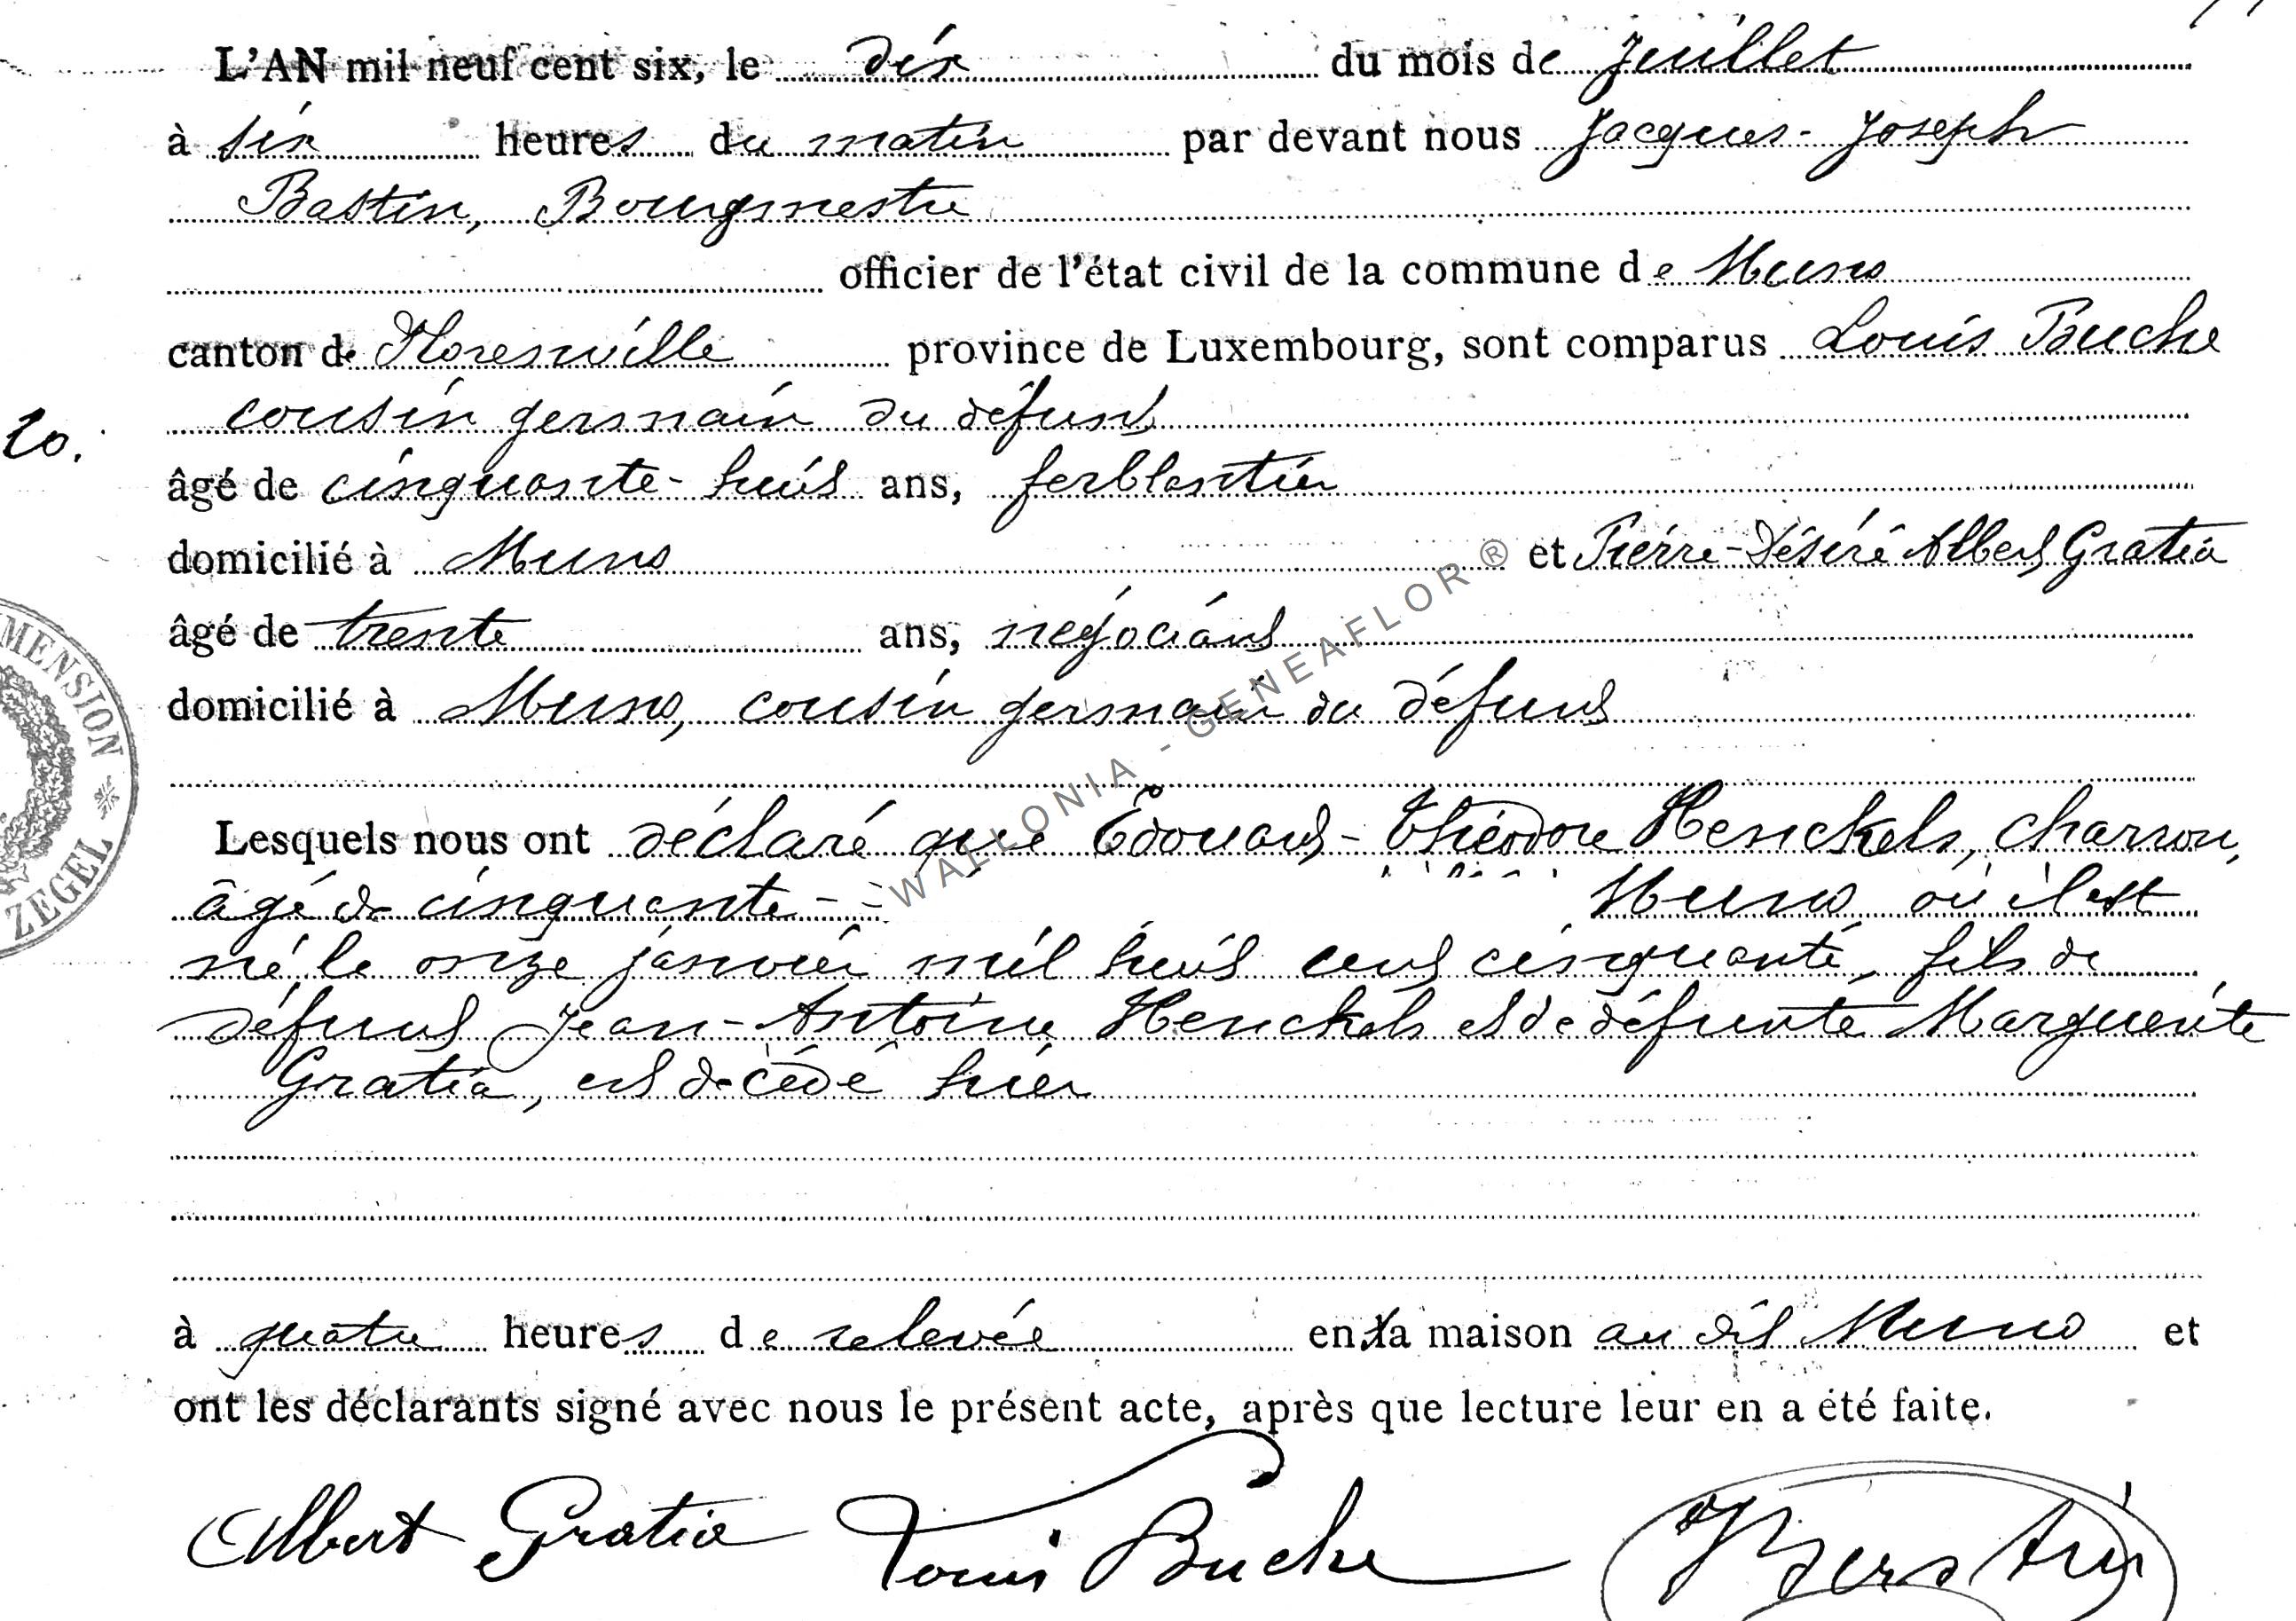 L'AN mil neuf cent six, le dix du mois de juillet
à six heures du matin par devant nous Jacques-Joseph
Bastin, Bourgmestre
officier de l'état civil de la commune de Muno
canton de Florenville province de Luxembourg, sont comparus Louis Buche
cousin germain du défunt
20.
âgé de cinquante-huit ans, ferblantier
domicilié à Muno et Pierre-Désiré Albert Gratia
âgé de trente ans, négociant
domicilié à Muno, cousin germain du défunt
MENSION * ZEGEL
WALLONIA - GENEAFLOR ®
Lesquels nous ont déclaré que Edouard-Théodore Henckels, charron,
âgé de cinquante- Muno où il est
né le onze janvier mil huit cent cinquante, fils de
défunt Jean-Antoine Henckels et de défunte Marguerite
Gratia, est décédé hier
à quatre heures de relevée en la maison au dit Muno et
ont les déclarants signé avec nous le présent acte, après que lecture leur en a été faite.
Albert Gratia Louis Buche Bastin